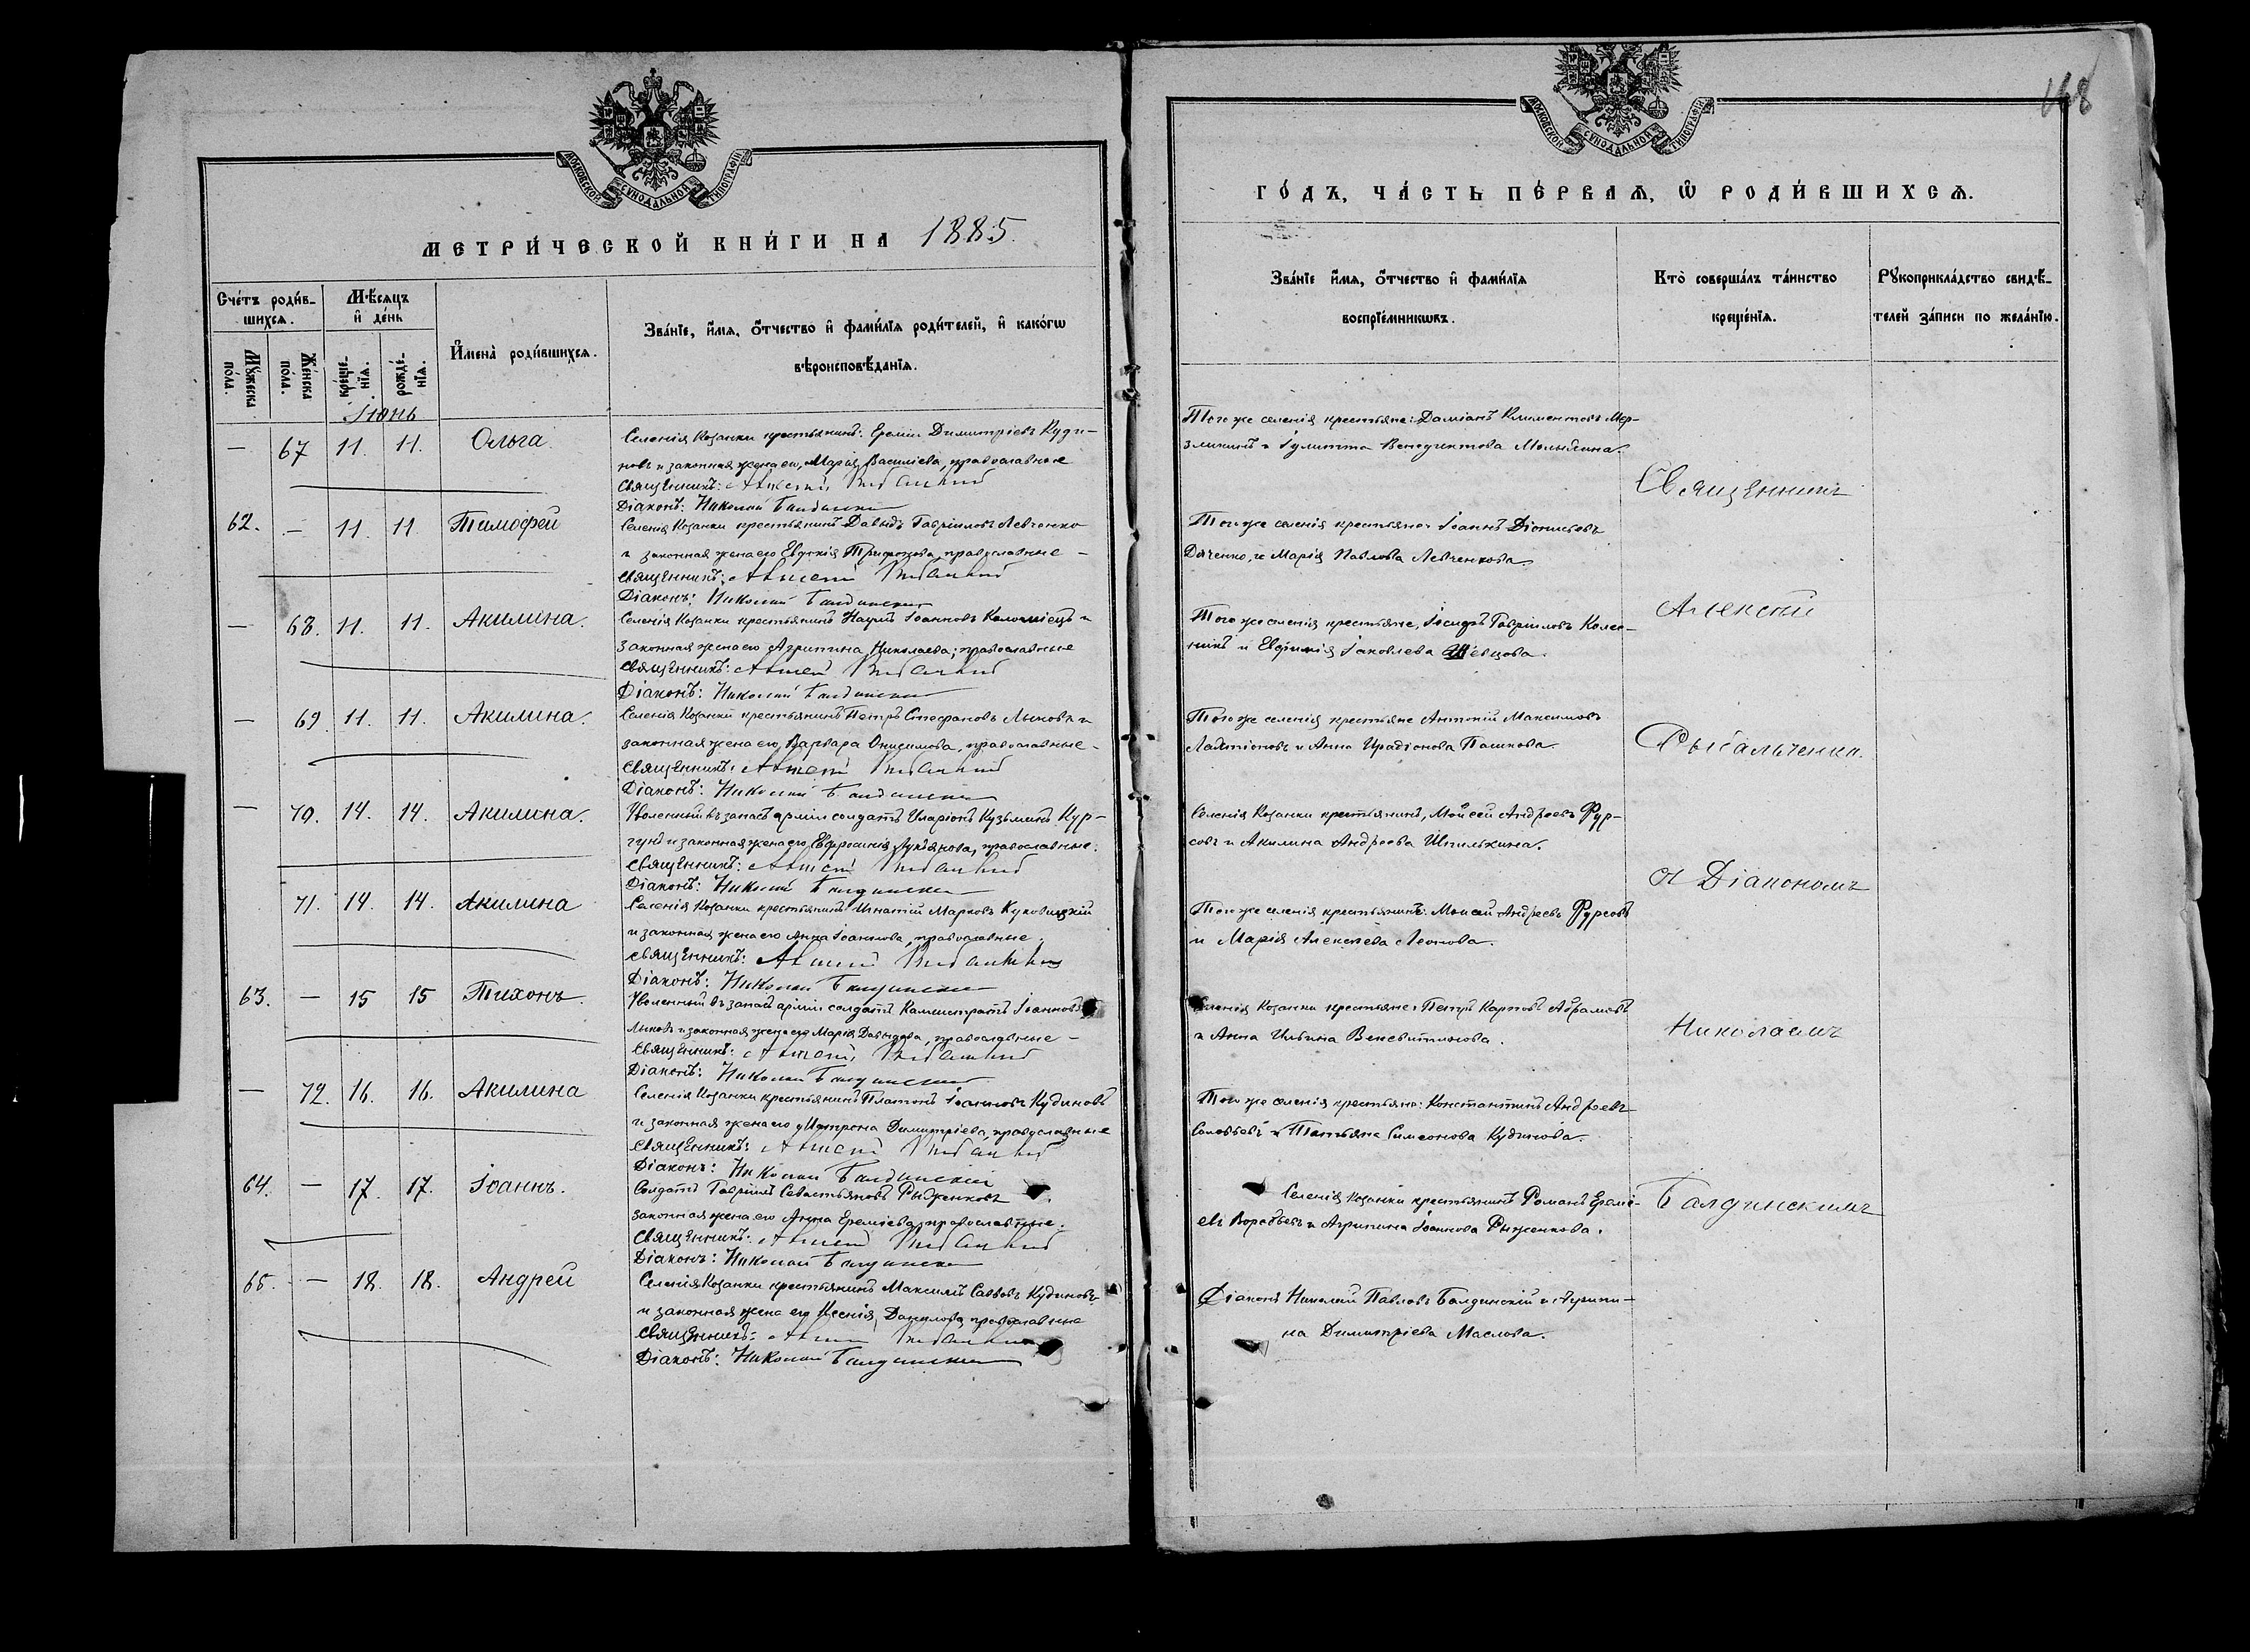 МОСКОВСКОЙ СѴНОДАЛЬНОЙ ТИПОГРАФІИ
МЕТРИ́ЧЕСКОЙ КНИ́ГИ НА 1885.
Сче́тъ роди́в-
шихсѧ.
Мѣ́сѧцъ
и҆ де́нь
И҆мена̀ роди́вшихсѧ.
Зва́нїе, и҆́мѧ, ѻ҆́тчество и҆ фами́лїѧ роди́телей, и҆ како́гѡ
вѣроисповѣ́данїѧ.
Мꙋ́жеска
пола.
Же́нска
пола.
креще́-
нїѧ.
рожде́-
нїѧ.
Іюнь
— 67 11. 11. Ольга.
Селенія Козанки крестьянинъ: Еремій Димитріевъ Куди-
новъ и законная жена его, Марія Василіева, православные
Священникъ: Алексій
Діаконъ: Николай Балдинскій
62. — 11. 11 Тимофей
Селенія Козанки крестьянинъ Давидъ Гавріиловъ Левченко
и законная жена его Евдокія Трифонова, православные —
Священникъ: Алексій
Діаконъ: Николай Балдинскій
— 68. 11. 11. Акилина.
Селенія Козанки крестьянинъ Наумъ Іоанновъ Коломіецъ и
законная жена его Агрипина Николаева; православные
Священникъ: Алексій
Діаконъ: Николай Балдинскій
— 69. 11. 11. Акилина.
Селенія Козанки крестьянинъ Петръ Стефановъ Лыковъ и
законная жена его, Варвара Онисимова, православные —
Священникъ: Алексій
Діаконъ: Николай Балдинскій
— 70. 14. 14. Акилина.
Уволенный въ запасъ арміи солдатъ Иларіонъ Кузьминъ Кур-
гунъ и законная жена его, Евфросинія Лукьянова, православные.
Священникъ: Алексій
Діаконъ: Николай Балдинскій
71. 14. 14. Акилина
Селенія Козанки крестьянинъ Игнатій Марковъ Куковицкій
и законная жена его Анна Іоаннова, православные.
Священникъ: Алексій
Діаконъ: Николай Балдинскій
63. — 15 15 Тихонъ.
Уволенный въ запасъ арміи солдатъ Каллистратъ Іоанновъ
Лыковъ и законная жена его Марія Давыдова, православные —
Священникъ: Алексій
Діаконъ: Николай Балдинскій
— 72. 16. 16. Акилина
Селенія Козанки крестьянинъ Платонъ Іоанновъ Кудиновъ
и законная жена его Матрона Димитріева, православные
Священникъ: Алексій
Діаконъ: Николай Балдинскій
64. — 17. 17. Іоаннъ.
Солдатъ Гавріилъ Севастьяновъ Рыженковъ
законная жена его Анна Ереміева, православные.
Священникъ: Алексій
Діаконъ: Николай Балдинскій
65. — 18. 18. Андрей
Селенія Козанки крестьянинъ Максимъ Саввовъ Кудиновъ
и законная жена его Ксенія Данилова, православные
Священникъ: Алексій
Діаконъ: Николай Балдинскій
168
МОСКОВСКОЙ СѴНОДАЛЬНОЙ ТИПОГРАФІИ
ГО́ДЪ, ЧА́СТЬ ПЕ́РВАѦ, Ѡ҆ РОДИ́ВШИХСѦ.
Зва́нїе и҆́мѧ, ѻ҆́тчество и҆ фами́лїѧ
воспрїе́мникѡвъ.
Кто̀ соверша́лъ та́инство
креще́нїѧ.
Рꙋкоприкла́дство свидѣ́-
телей за́писи по жела́нїю.
Того же селенія крестьяне: Даміанъ Климентовъ Мер-
зликинъ и Іулитта Венедиктова
Того же селенія крестьяне: Іоаннъ Діонисіевъ
Дяченко, и Марія Павлова Левченкова.
Того же селенія крестьяне, Іосифъ Гавріиловъ Колес-
никъ и Евфимія Іаковлева Шевцова.
Того же селенія крестьяне Антоній Максимовъ
Лактіоновъ и Анна Иродіонова Пашкова.
Селенія Козанки крестьянинъ, Мойсей Андреевъ Фур-
совъ и Акилина Андреева Шпилькина.
Того же селенія крестьянинъ: Моисей Андреевъ Фурсовъ
и Марія Алексѣева Леонова.
Селенія Козанки крестьяне: Петръ Карповъ Абрамовъ
и Анна Ильина Веневитинова.
Того же селенія крестьяне: Константинъ Андреевъ
Соловьевъ и Татьяна Симеонова Кудинова.
Селенія Козанки крестьянинъ Романъ Еремі-
евъ Воробьевъ и Агрипина Іоаннова Рыженкова.
Діаконъ Николай Павловъ Балдинскій и Агрипи-
на Димитріева Маслова.
Священникъ
Алексій
Рыбальченко.
съ Діакономъ
Николаемъ
Балдинскимъ